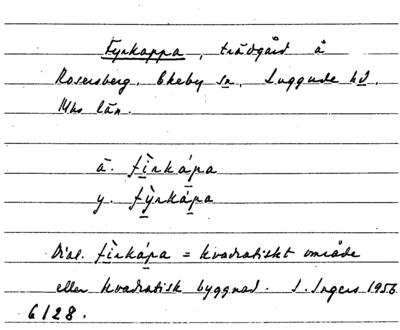 Fyrkappa, trädgård å
Rosersberg, Ekeby sn, Luggude hd,
Mhs län.
ä. fìrkápa
y. fỳrkápa
Dial. fìrkápa = kvadratiskt område
eller kvadratisk byggnad. I. Ingers 1956.
6128.